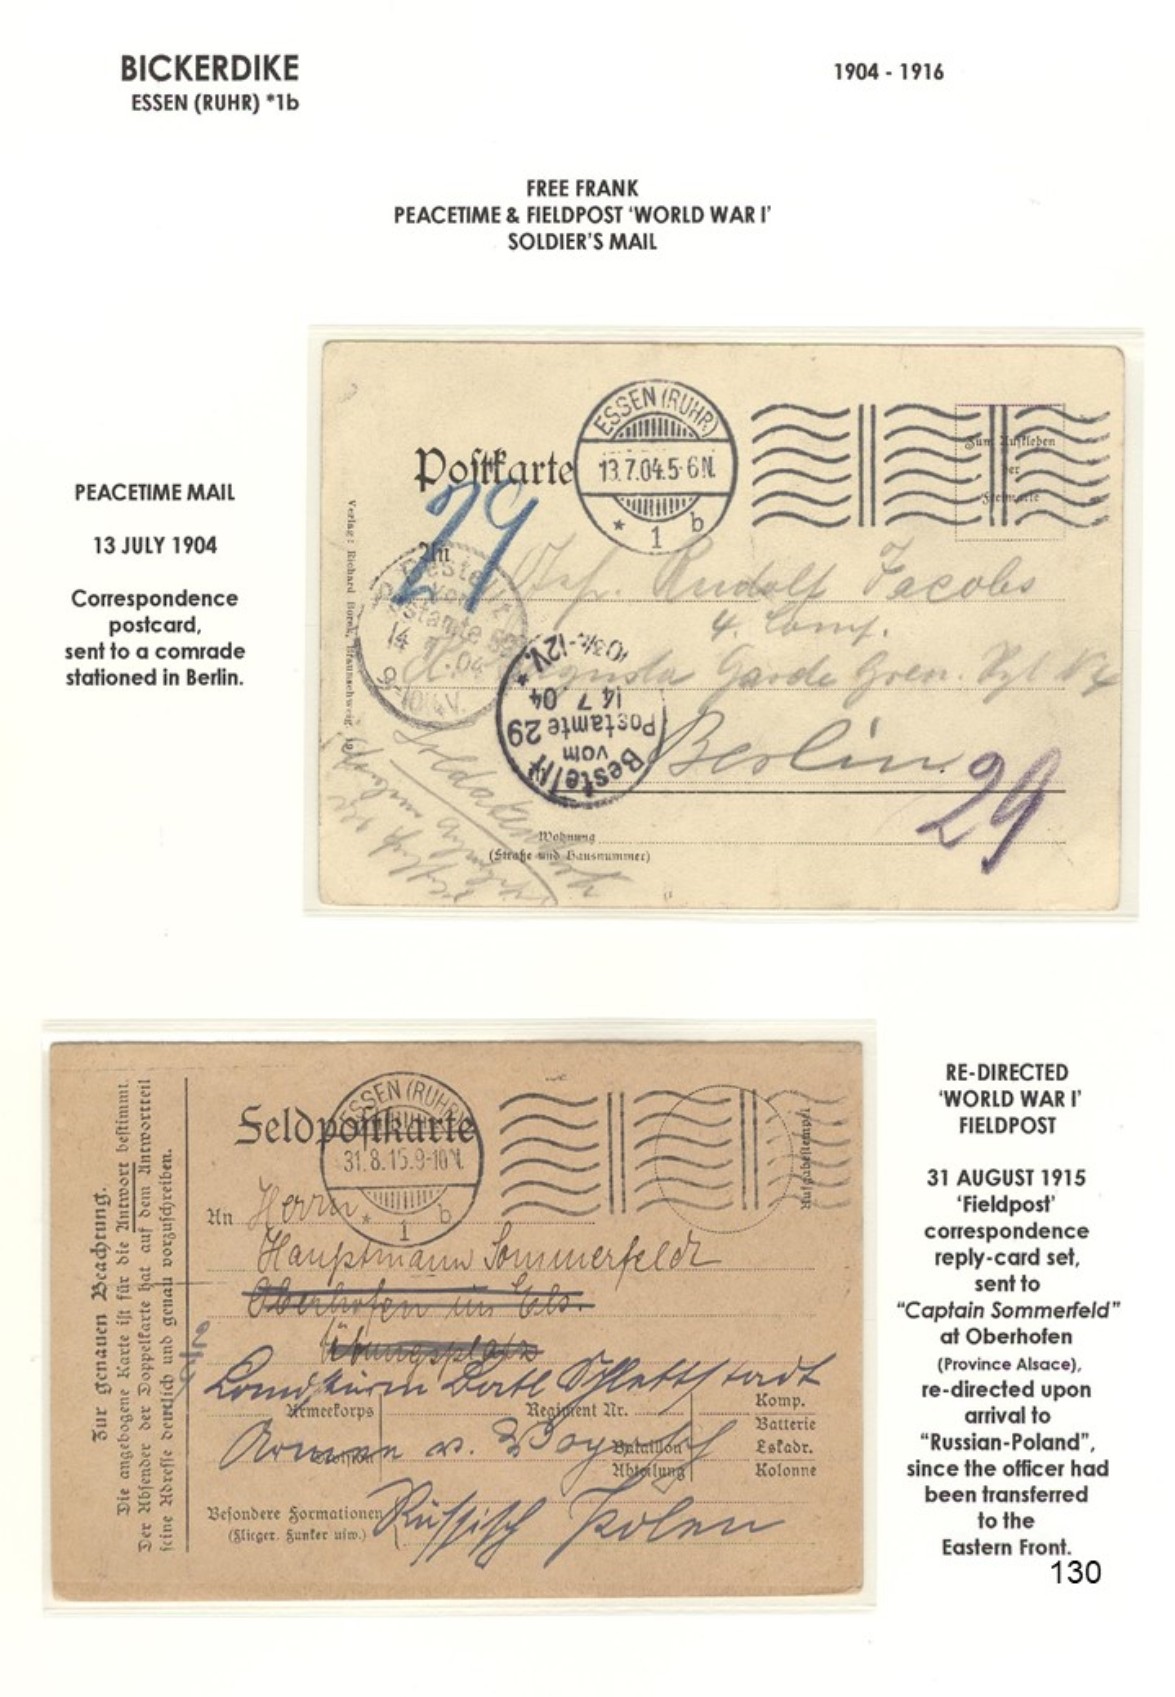 BICKERDIKE
1904 - 1916
ESSEN (RUHR) *1b
FREE FRANK
PEACETIME & FIELDPOST ‘WORLD WAR I’
SOLDIER’S MAIL
PEACETIME MAIL
13 JULY 1904
Correspondence
postcard,
sent to a comrade
stationed in Berlin.
Postkarte
ESSEN (RUHR)
13.7.04.5-6N.
* 1 b
Zum Aufkleben
der
Freimarke
29
An
Rudolf Jacobs
4. Comp.
Augusta Garde Gren. Rgt N 4
Berlin
29
Bestellt
vom
Postamte
14
04
Bestellt
vom
Postamte 29
14 7 04
Wohnung
(Straße und Hausnummer)
Verlag: Richard Borek, Braunschweig
RE-DIRECTED
‘WORLD WAR I’
FIELDPOST
31 AUGUST 1915
‘Fieldpost’
correspondence
reply-card set,
sent to
“Captain Sommerfeld”
at Oberhofen
(Province Alsace),
re-directed upon
arrival to
“Russian-Poland”,
since the officer had
been transferred
to the
Eastern Front.
130
Zur genauen Beachtung.
Die angebogene Karte ist für die Antwort bestimmt.
Der Absender der Doppelkarte hat auf dem Antwortteil
seine Adresse deutlich und genau vorzuschreiben.
Feldpostkarte
ESSEN (RUHR)
31.8.15.9-10V.
* 1 b
Aufgabestempel
An Herrn
Hauptmann Sommerfeldt
Oberhofen im Els.
Übungsplatz
Landsturm Batl Schlettstadt
Armeekorps
Regiment Nr.
Komp.
Batterie
Armee v. Woyrsch
Division
Bataillon
Eskadr.
Abteilung
Kolonne
Besondere Formationen
(Flieger, Funker usw.)
Russisch Polen